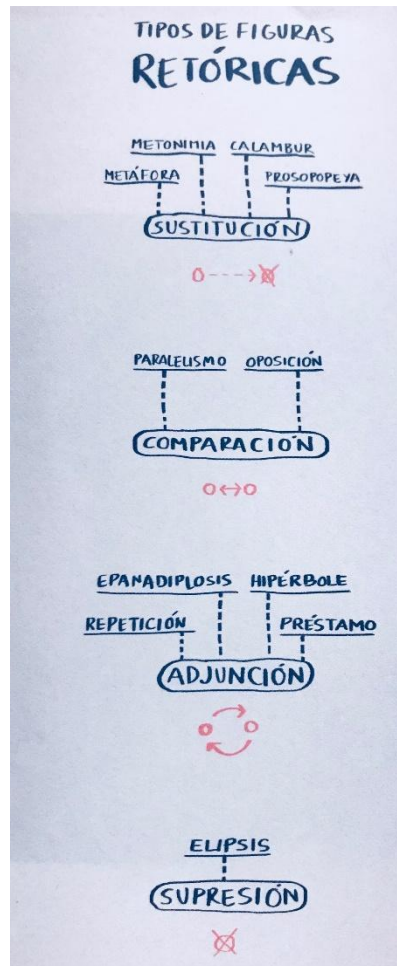 TIPOS DE FIGURAS
RETÓRICAS
METONIMIA CALAMBUR
METÁFORA PROSOPOPEYA
SUSTITUCIÓN
PARALELISMO OPOSICIÓN
COMPARACIÓN
EPANADIPLOSIS HIPÉRBOLE
REPETICIÓN PRÉSTAMO
ADJUNCIÓN
ELIPSIS
SUPRESIÓN